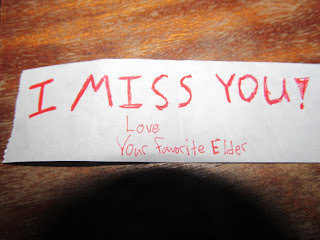 I MISS YOU!
Love
Your Favorite Elder